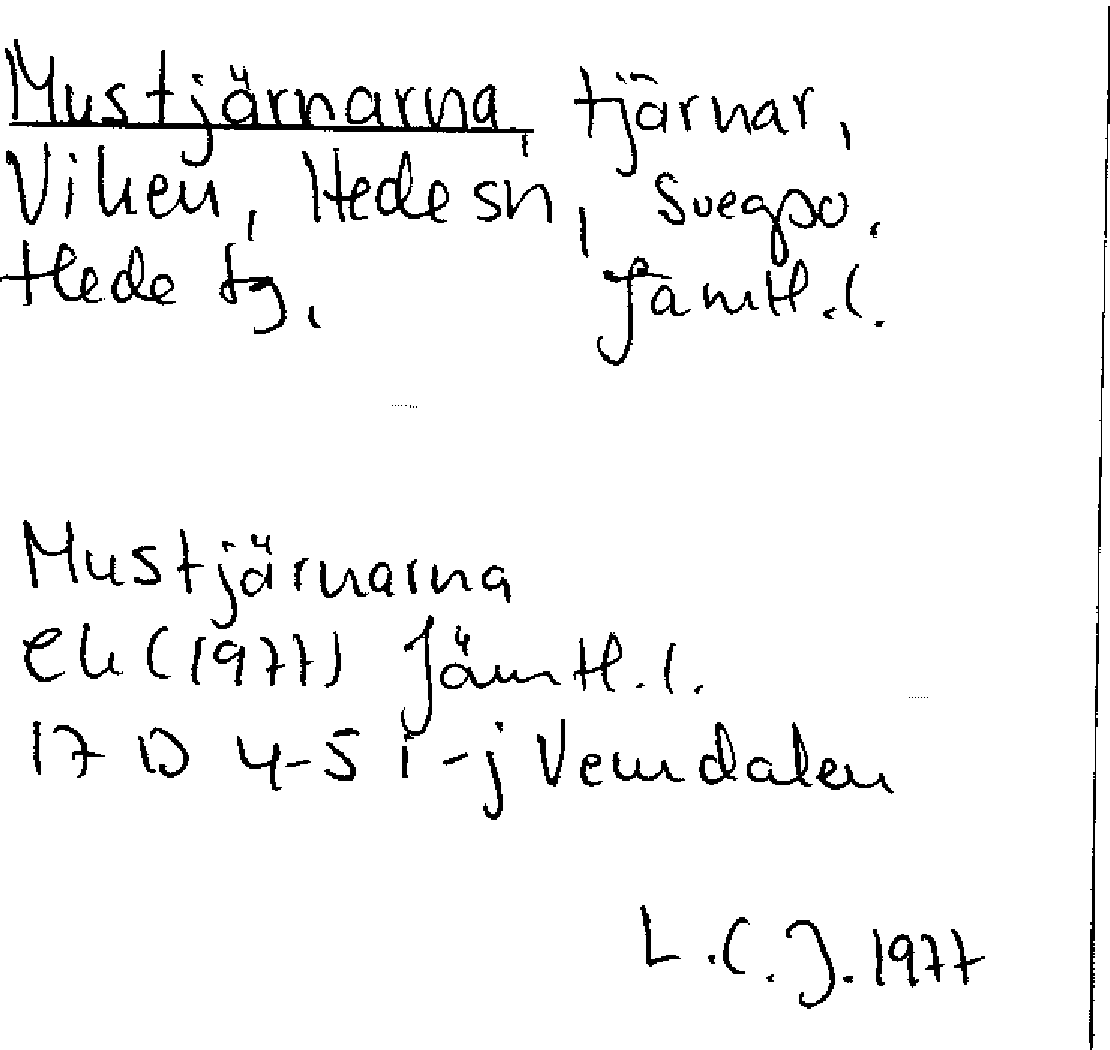 Mustjärnarna, tjärnar,
Viken, Hede sn, Svegpo.
Hede tg, Jämtl.l.
Mustjärnarna
ek (1977) Jämtl.l.
17 D 4-5 i-j Vemdalen
L.C.J. 1977